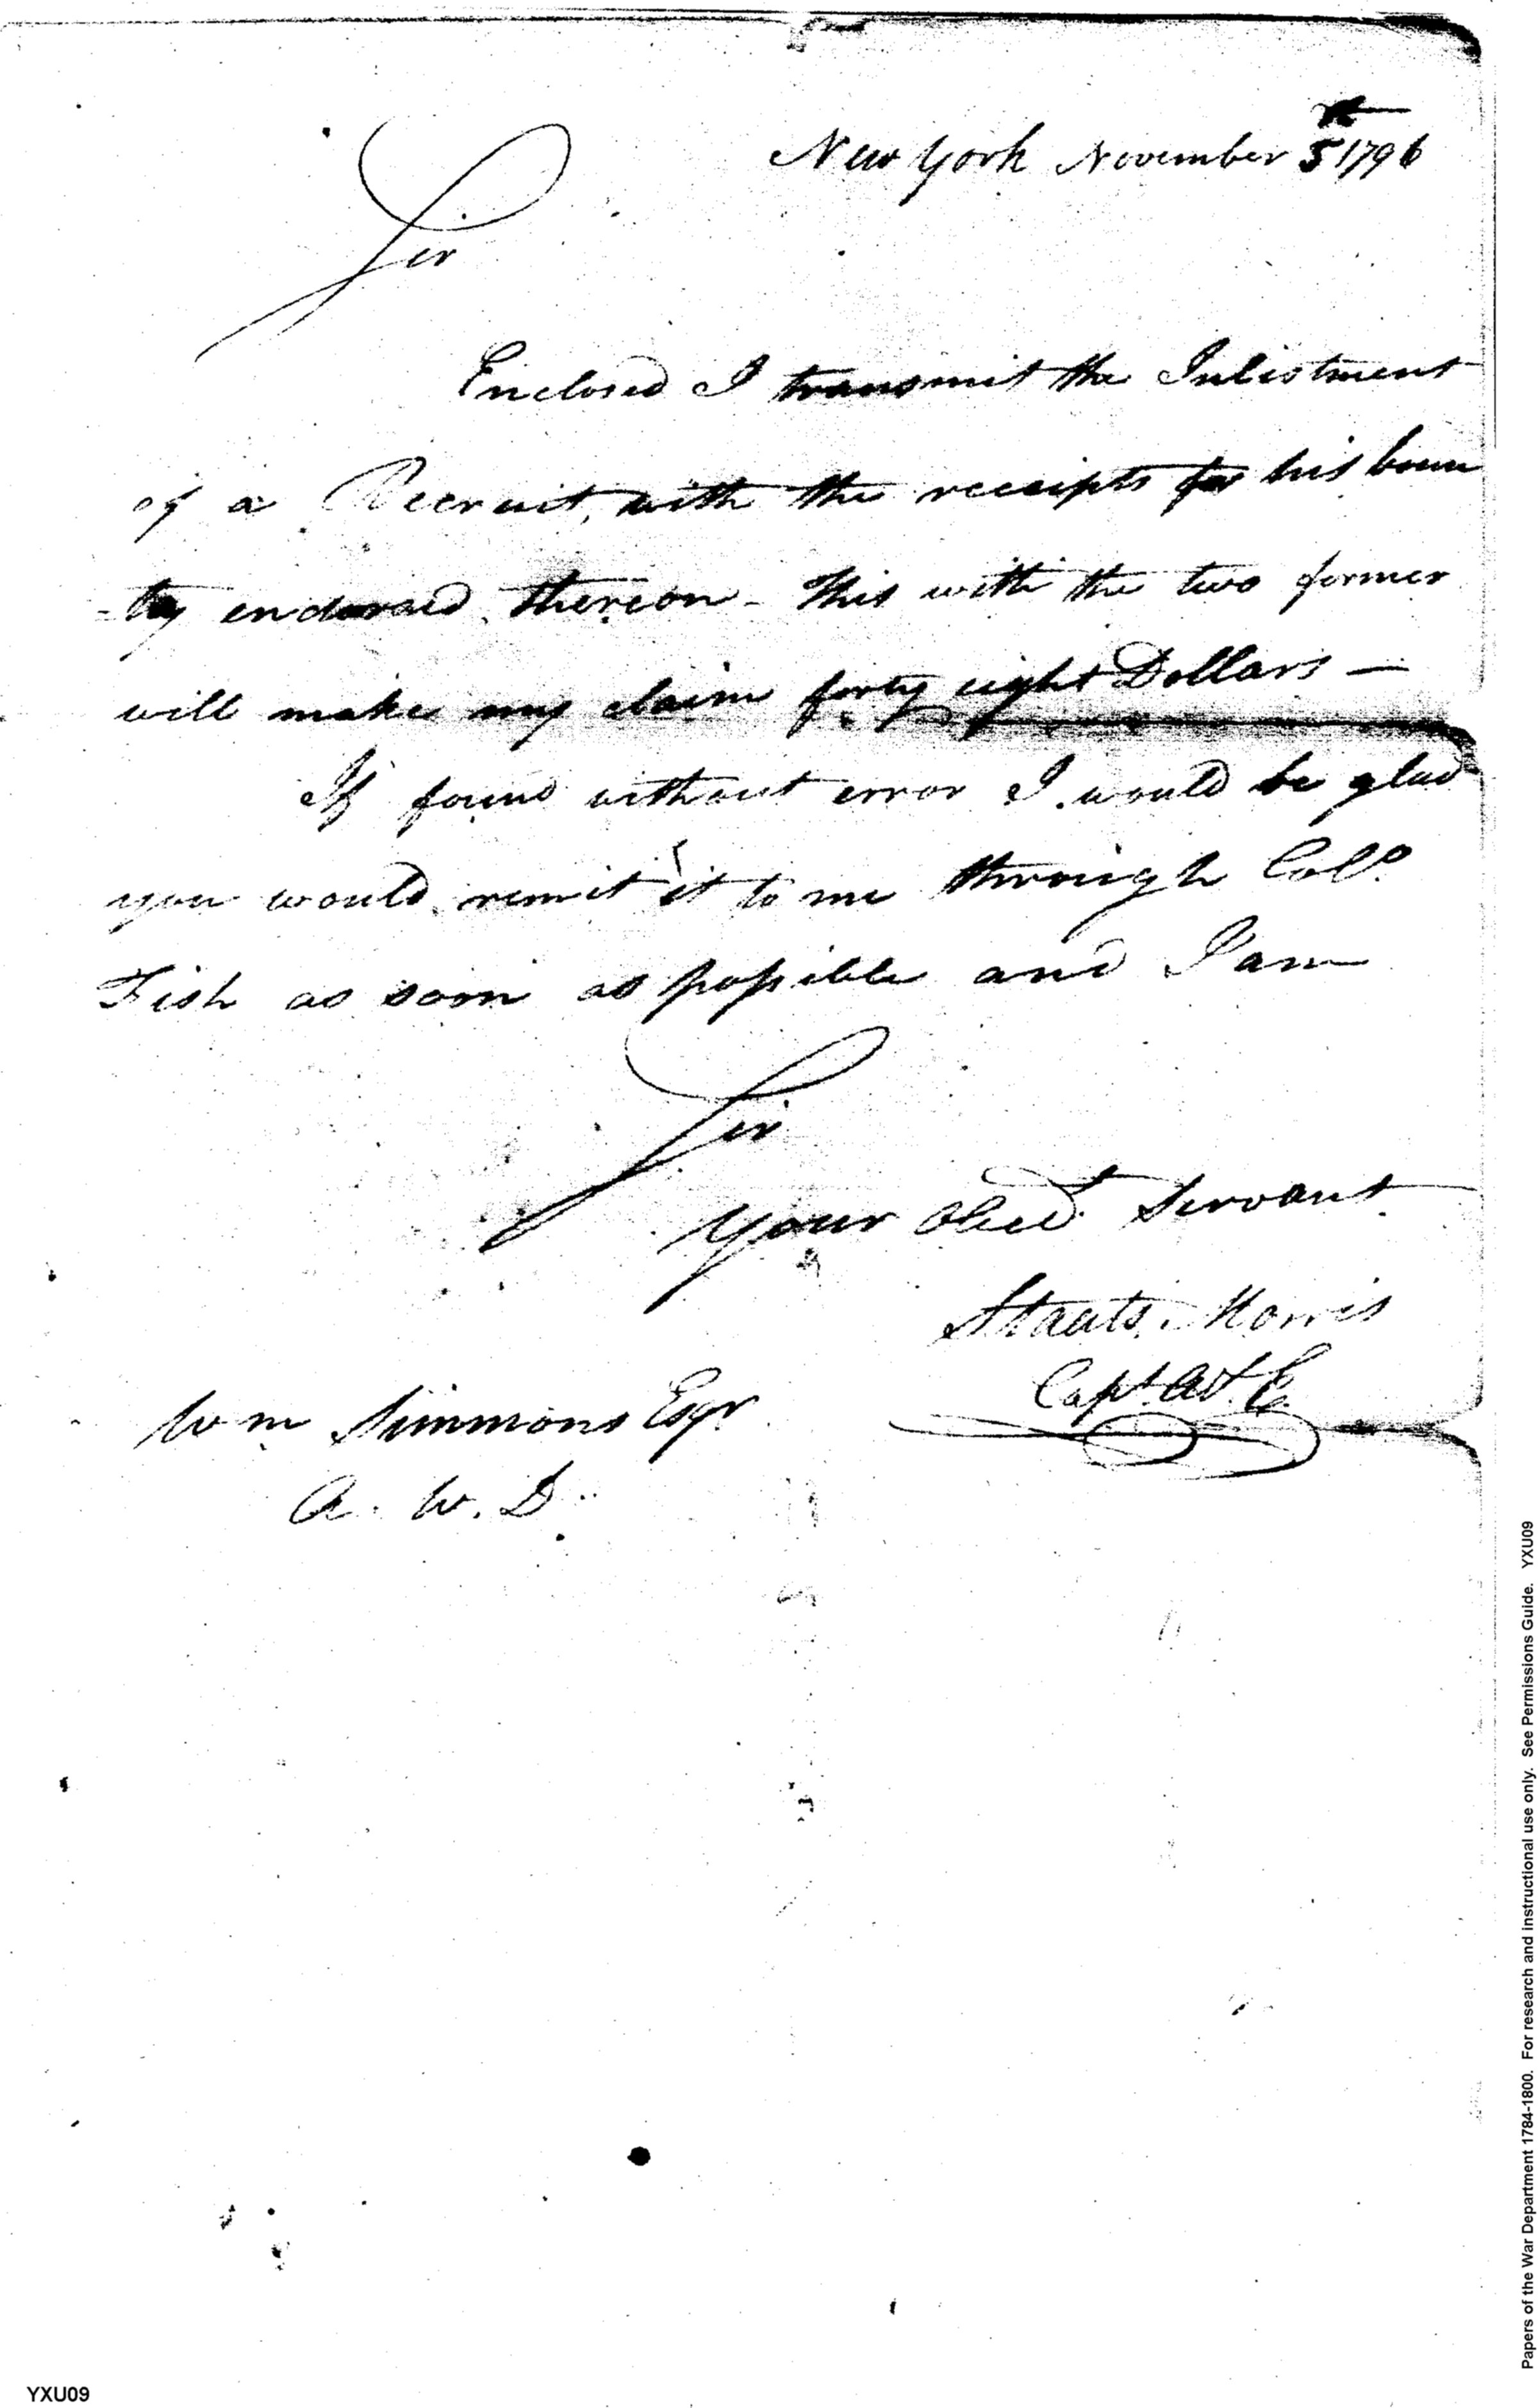 New York November 5th 1796
Sir
Enclosed I transmit the Inlistment
of a Recruit, with the receipts for his boun
-ty endorsed thereon - This with the two former
will make my claim forty eight Dollars —
If found without error I would be glad
you would remit it to me through Colo.
Fish as soon as possible and I am
Sir
your obed.t Servant
Staats Morris
Capt. Art. E.
Wm Simmons Esqr
A. W. D.
Papers of the War Department 1784-1800. For research and instructional use only. See Permissions Guide. YXU09
YXU09